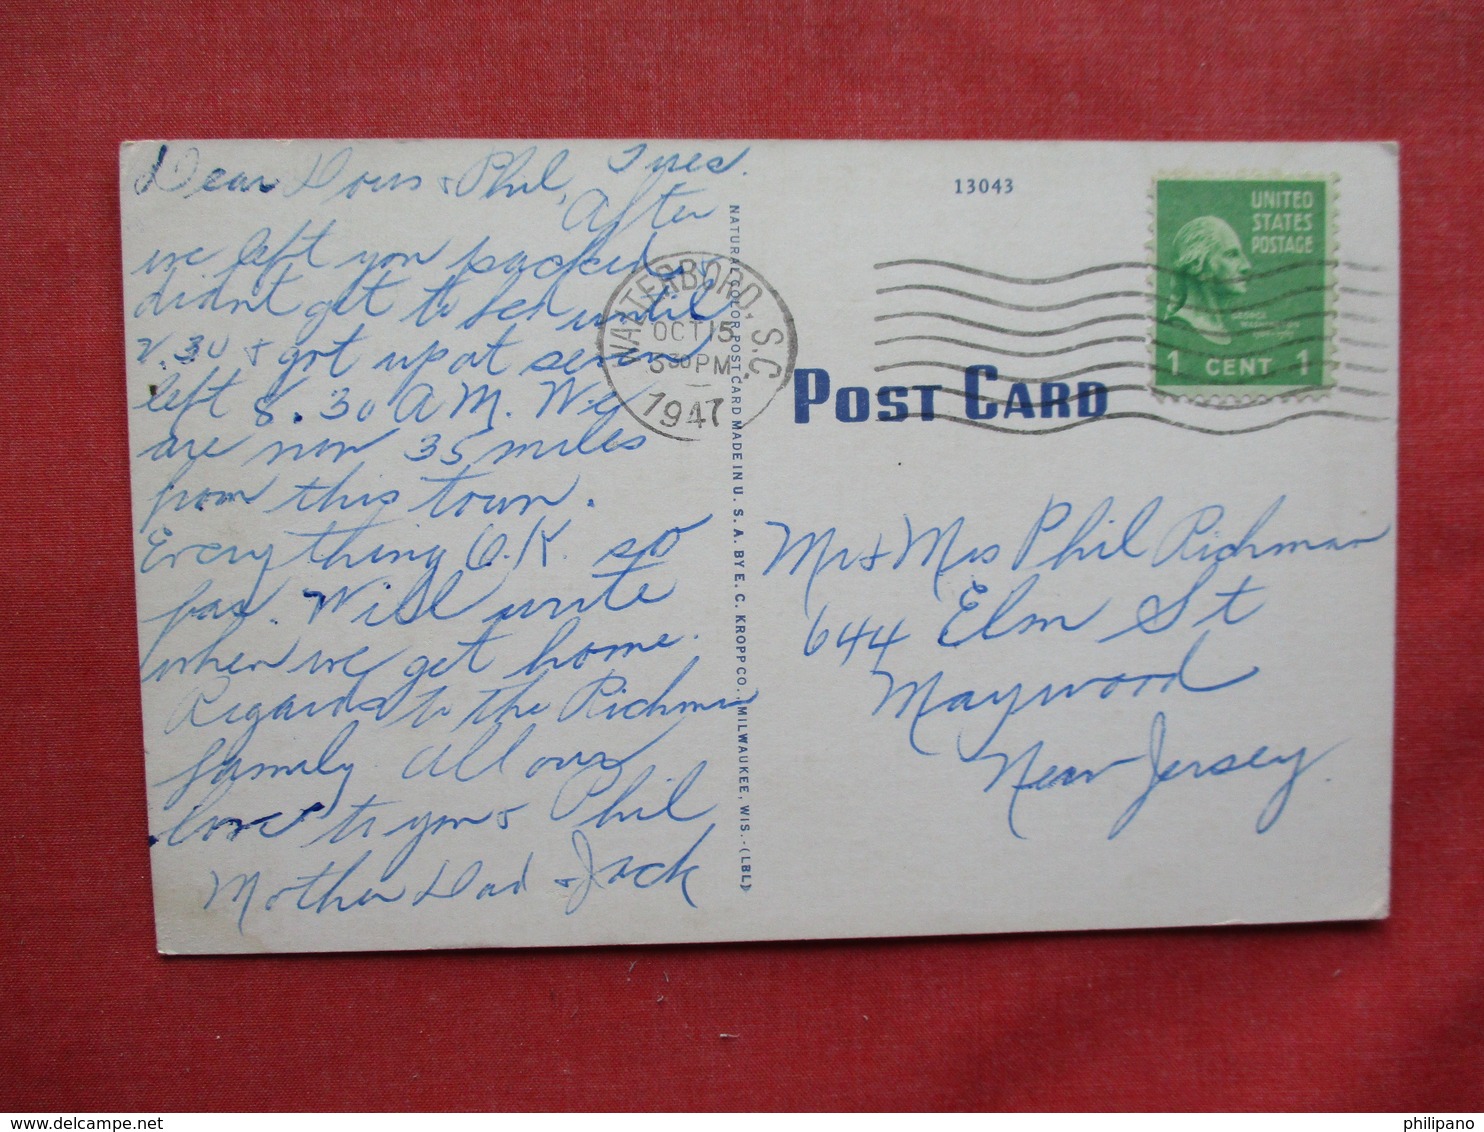 Dear Doris & Phil, Tues.
After
we left you packed,
didnt get to bed until
2.30 & got up at seven
left 8.30 A M. We
are now 35 miles
from this town.
Everything O.K. so
far. Will write
when we get home.
Regards to the Richman
family All our
love to you & Phil
Mother Dad & Jack
NATURAL COLOR POST CARD MADE IN U. S. A. BY E. C. KROPP CO., MILWAUKEE, WIS.-(LBL)
13043
WALTERBORO, S.C.
OCT 15
5 30 PM
1947
UNITED
STATES
POSTAGE
GEORGE
WASHINGTON
1 CENT 1
POST CARD
Mr & Mrs Phil Richman
644 Elm St
Maywood
New Jersey
delcampe.net
philipano